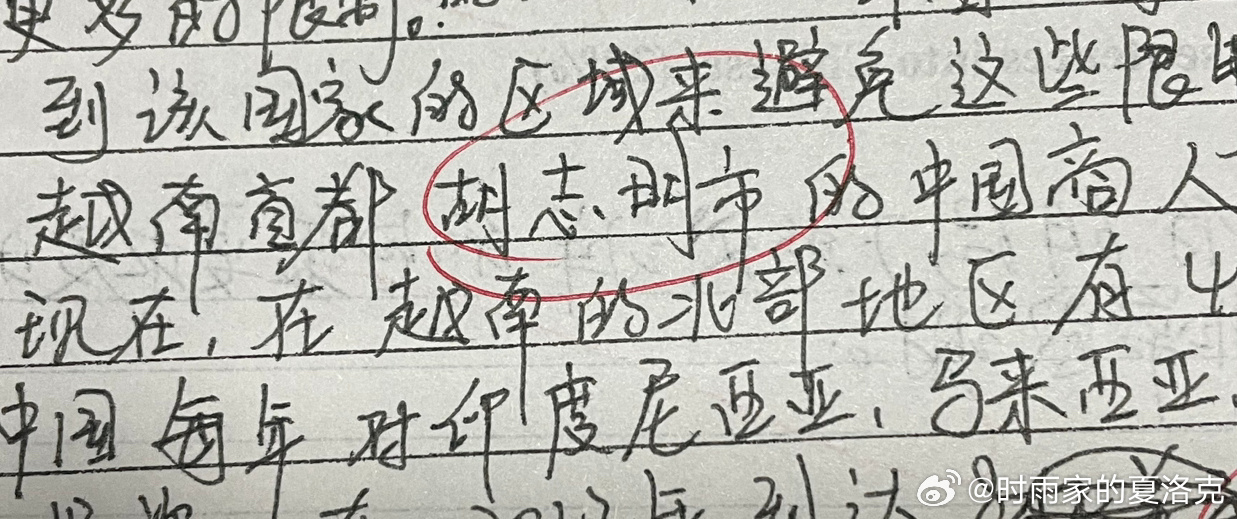 更多的限制。
到该国家的区域来避免这些限制
越南首都胡志明市的中国商人
现在,在越南的北部地区有
中国每年对印度尼西亚、马来西亚、
@时雨家的夏洛克